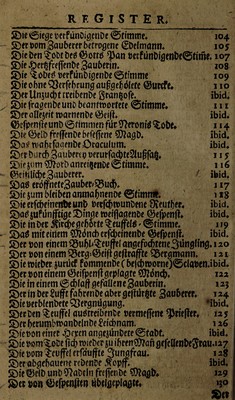 REGISTER.
Die Siege verkündigende Stimme. 104
Der vom Zauberer betrogene Edelmann. 105
Die den Todt des Gotts Pan verkündigende Stiṁe. 107
Die Hertzfressende Zauberin. 108
Die Todes verkündigende Stimme 109
Die ohne Versehrung außgehölete Gurcke. 110
Der Unzucht treibende Frantzose. ibid.
Die fragende und beantwortete Stimme. 111
Der allezeit warnende Geist. ibid.
Gespenste und Stimmen für Neronis Tode. 114
Die Geld fressende besessene Magd. ibid.
Das wahrsagende Oraculum. ibid.
Der durch Zauberey verursachte Außsatz. 115
Die zum Mord anreitzende Stimme. 116
Geistlicher Zauberer. ibid.
Das eröffnete Zauber-Buch. 117
Die zum bleiben anmahnende Stimme. 118
Die erscheinende und verschwundene Reuther. ibid.
Das zukünfftige Dinge weissagende Gespenst. ibid.
Die in der Kirche gehörte Teuffels-Stimme. 119
Das mit einem Mönch erscheinende Gespenst. ibid.
Der von einem Buhl-Teuffel angefochtene Jüngling. 120
Der von einem Berg-Geist gestraffte Bergmann. 121
Die wieder zurück kommende (beschworne) Sclaven. ibid.
Der von einem Geispenst geplagte Mönch. 122
Die in einem Schlaff gefallene Zauberin. 123
Der in der Lufft fahrende aber gestürtzte Zauberer. 124
Die verblendete Vergnügung. ibid.
Der den Teuffel austreibende vermessene Priester. ibid.
Der herumbwandelnde Leichnam. ibid.
Die von einer Hexen angezündete Stadt. ibid.
Die vom Tode sich wieder zu ihrem Man gesellende Frau. 127
Die vom Teuffel ersäuffte Jungfrau. 128
Der abgehauene redende Kopff. ibid.
Die Geld und Nadeln fressende Magd. 129
Der von Gespensten übelgeplagte. 130
Der